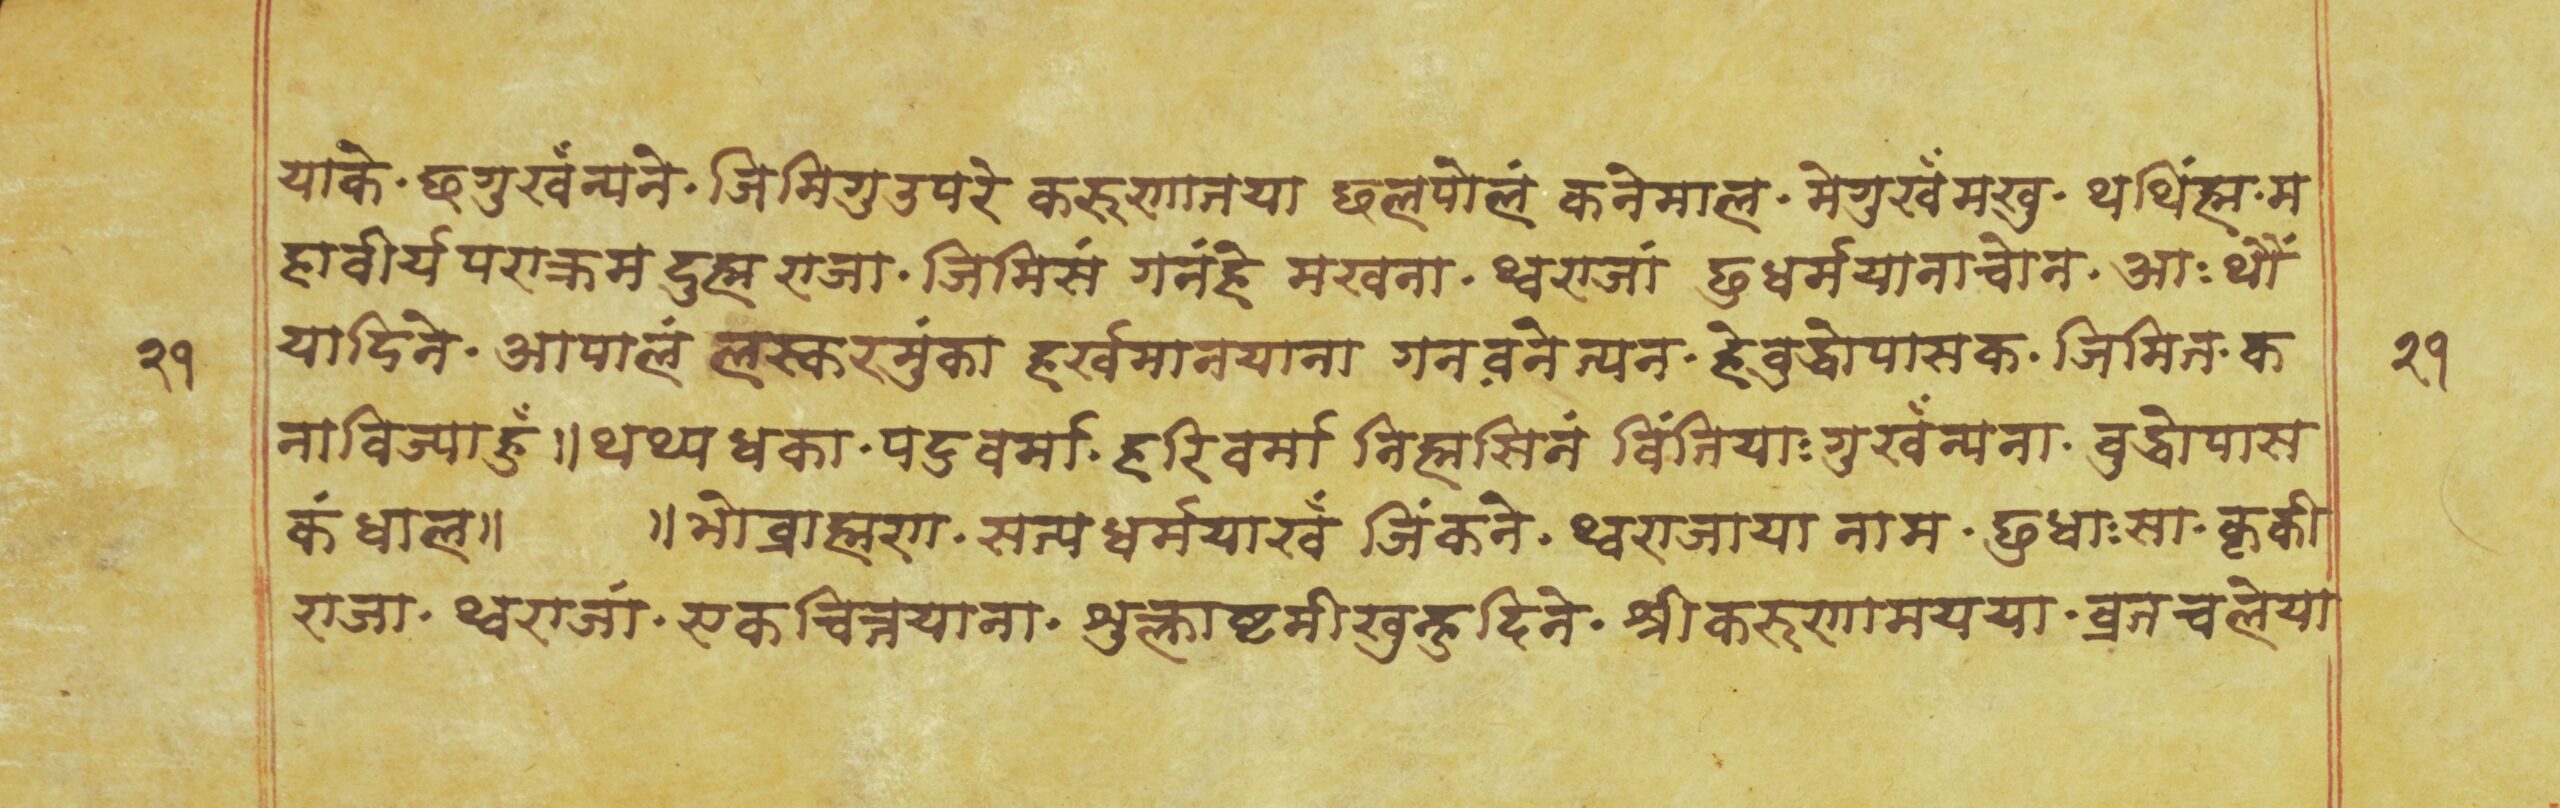 याके. छगुखँन्यने. जिमिगुउपरे करूणातया छलपोलं कनेमाल. मेगुखँमखु. थथिंह्म. म
हावीर्यपराक्रम दुह्म राजा. जिमिसं गनंहे मखना. थ्वराजां छुधर्मयानाचोन. आः थौं
२१ यादिने. आपालं लस्करमुंका हर्खमानयाना गनव़ने त्यन. हेवुद्धोपासक. जिमित. क २१
नाविज्याहुँ ॥ थथ्यधका. पदुवर्मा. हरिवर्मा निह्मसिनं विंतियाः गुखँन्यना. वुद्धोपास
कं धाल ॥ ॥ भोव्राह्मण. सत्यधर्मयाखँ जिंकने. थ्वराजाया नाम. छुधाःसा. कृकी
राजा. थ्वराजां. एकचित्तयाना. शुक्लाष्टमीखुन्हुदिने. श्रीकरूणामयया. व्रतचलेया